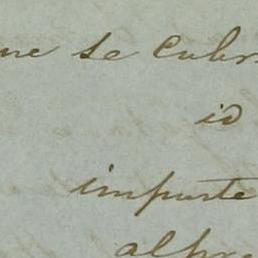 ne se cubr
id
importe
alpre